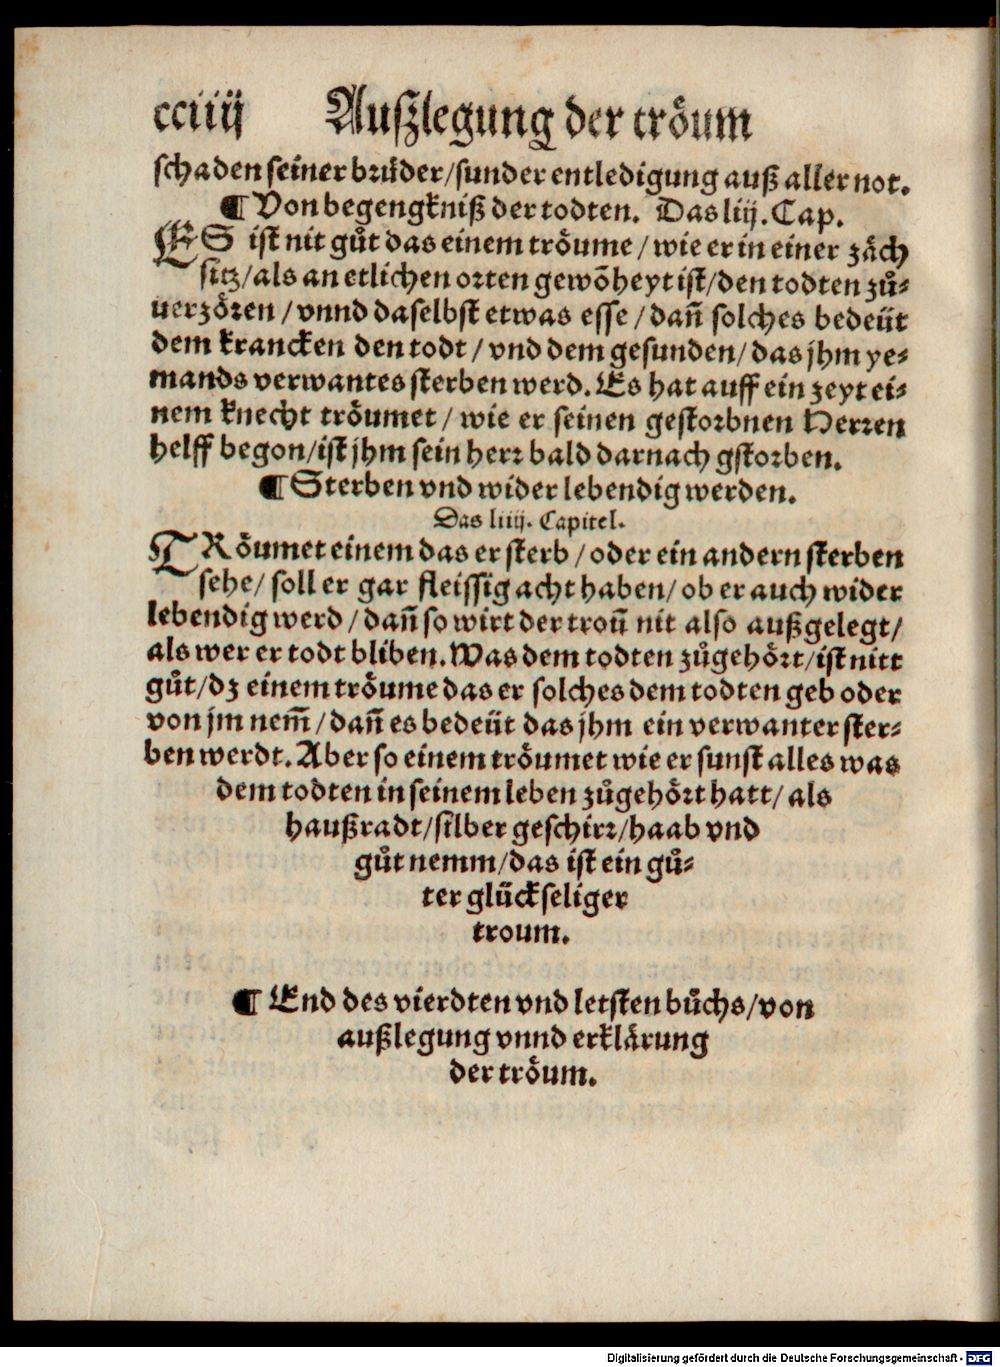 cciiij Auſzlegung der troͤum
ſchaden ſeiner bruͤder/ſunder entledigung auß aller not.
¶ Von begengkniß der todten. Das liij. Cap.
ES iſt nit guͦt das einem troͤume/wie er in einer zaͤch
ſitz/als an etlichen orten gewõheyt iſt/den todten zuͦ-
uerzoͤren/vnnd daſelbſt etwas eſſe/dañ ſolches bedeüt
dem krancken den todt/vnd dem geſunden/das jhm ye-
mands verwantes ſterben werd. Es hat auff ein zeyt ei-
nem knecht troͤumet/wie er ſeinen geſtorbnen Herren
helff begon/iſt jhm ſein herr bald darnach gſtorben.
¶ Sterben vnd wider lebendig werden.
Das liiij. Capitel.
TRoͤumet einem das er ſterb/oder ein andern ſterben
ſehe/ſoll er gar fleiſſig acht haben/ob er auch wider
lebendig werd/dañ ſo wirt der troũ nit alſo außgelegt/
als wer er todt bliben. Was dem todten zuͦgehoͤrt/iſt nitt
guͦt/dz einem troͤume das er ſolches dem todten geb oder
von jm nem̃/dañ es bedeüt das jhm ein verwanter ſter-
ben werdt. Aber ſo einem troͤumet wie er ſunſt alles was
dem todten in ſeinem leben zuͦgehoͤrt hatt/als
haußradt/ſilber geſchirr/haab vnd
guͦt nemm/das iſt ein guͦ-
ter glückſeliger
troum.
¶ End des vierdten vnd letſten buͦchs/von
außlegung vnnd erklaͤrung
der troͤum.
Digitalisierung gefördert durch die Deutsche Forschungsgemeinschaft - DFG